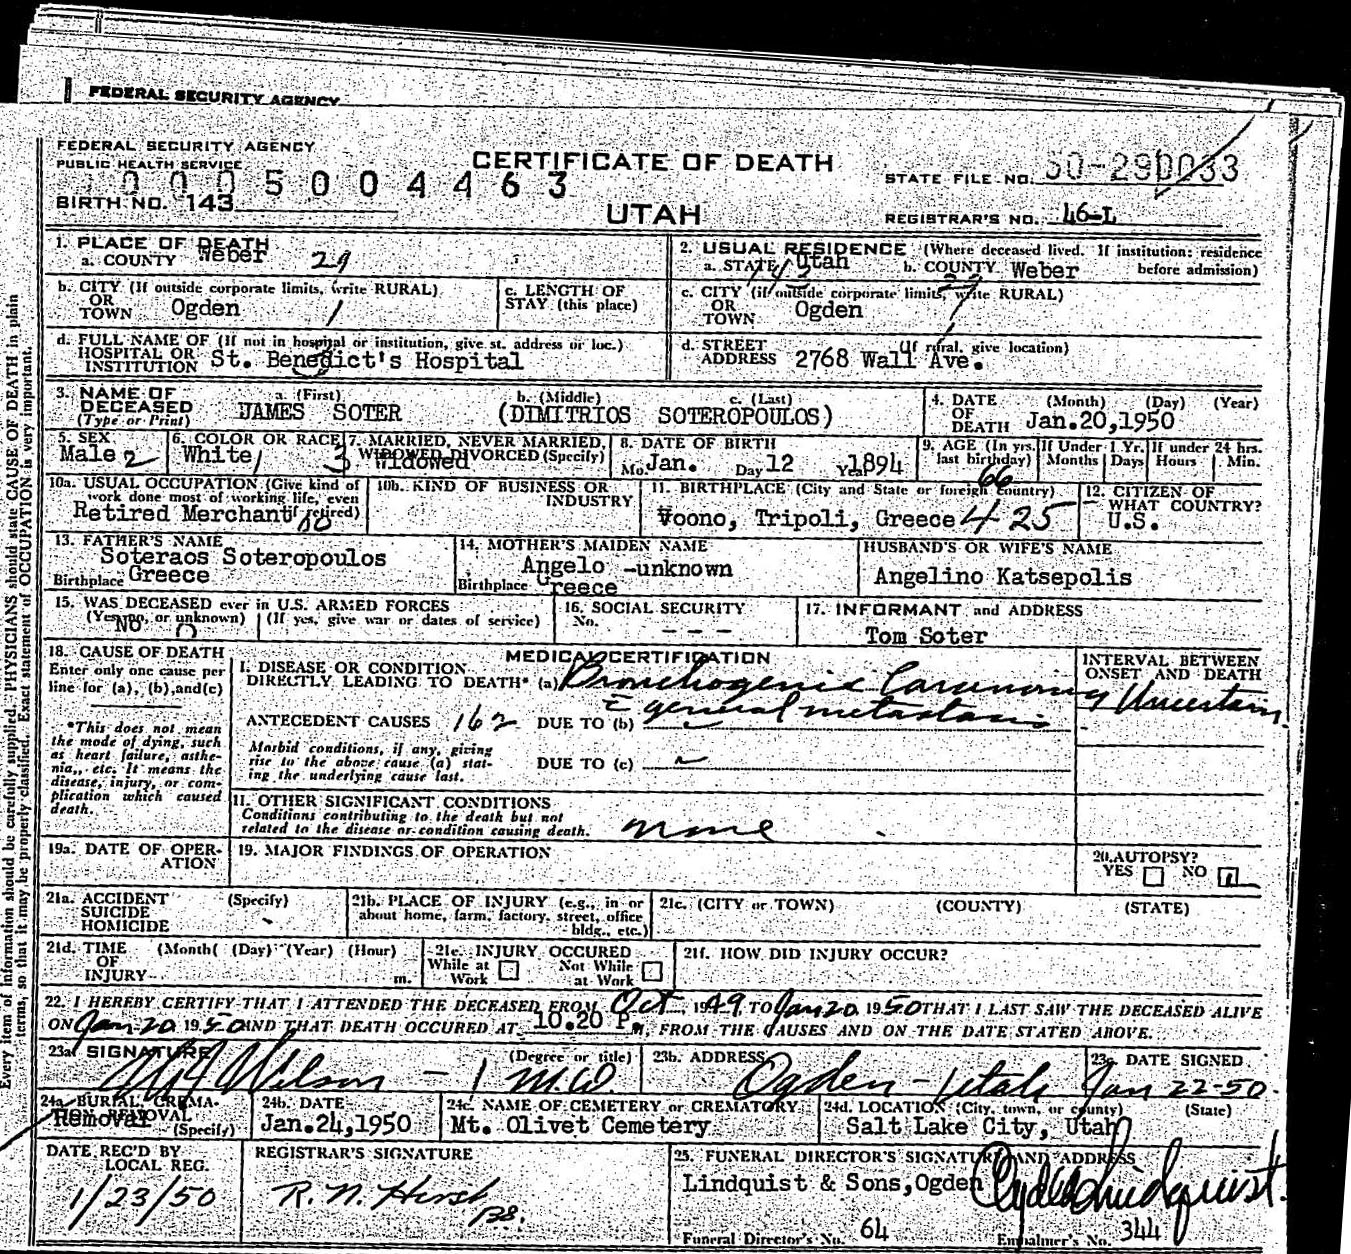 FEDERAL SECURITY AGENCY
FEDERAL SECURITY AGENCY
PUBLIC HEALTH SERVICE
CERTIFICATE OF DEATH
STATE FILE NO. 50-290033
0 0 0 5 0 0 4 4 6 3
BIRTH NO. 143
UTAH
REGISTRAR'S NO. 46-L
1. PLACE OF DEATH
a. COUNTY Weber 29
2. USUAL RESIDENCE (Where deceased lived. If institution: residence before admission)
a. STATE Utah b. COUNTY Weber
b. CITY (If outside corporate limits, write RURAL)
OR
TOWN Ogden 1
c. LENGTH OF
STAY (this place)
c. CITY (if outside corporate limits, write RURAL)
OR
TOWN Ogden
d. FULL NAME OF (If not in hospital or institution, give st. address or loc.)
HOSPITAL OR
INSTITUTION St. Benedict's Hospital
d. STREET (If rural, give location)
ADDRESS 2768 Wall Ave.
3. NAME OF
DECEASED
(Type or Print)
a. (First) b. (Middle) c. (Last)
JAMES SOTER (DIMITRIOS SOTEROPOULOS)
4. DATE (Month) (Day) (Year)
OF
DEATH Jan.20,1950
5. SEX
Male 2
6. COLOR OR RACE
White 1
7. MARRIED, NEVER MARRIED,
WIDOWED DIVORCED (Specify)
3 Widowed
8. DATE OF BIRTH
Mo. Jan. Day 12 Year 1894
9. AGE (In yrs. last birthday) 66
If Under 1 Yr. Months Days
If under 24 hrs. Hours Min.
10a. USUAL OCCUPATION (Give kind of
work done most of working life, even
if retired)
Retired Merchant
10b. KIND OF BUSINESS OR
INDUSTRY
11. BIRTHPLACE (City and State or foreign country)
Voono, Tripoli, Greece 425
12. CITIZEN OF
WHAT COUNTRY?
U.S.
13. FATHER'S NAME
Soteraos Soteropoulos
Birthplace Greece
14. MOTHER'S MAIDEN NAME
Angelo -unknown
Birthplace Greece
HUSBAND'S OR WIFE'S NAME
Angelino Katsepolis
15. WAS DECEASED ever in U.S. ARMED FORCES
(Yes, no, or unknown) (If yes, give war or dates of service)
No 0
16. SOCIAL SECURITY
No. - - -
17. INFORMANT and ADDRESS
Tom Soter
18. CAUSE OF DEATH
Enter only one cause per
line for (a), (b),and(c)
*This does not mean
the mode of dying, such
as heart failure, asthe-
nia,, etc. It means the
disease, injury, or com-
plication which caused
death.
MEDICAL CERTIFICATION
I. DISEASE OR CONDITION
DIRECTLY LEADING TO DEATH* (a) Bronchogenic Carcinoma
c̄ general metastasis
ANTECEDENT CAUSES 162 DUE TO (b)
Morbid conditions, if any, giving
rise to the above cause (a) stat-
ing the underlying cause last.
DUE TO (c)
INTERVAL BETWEEN
ONSET AND DEATH
Uncertain
11. OTHER SIGNIFICANT CONDITIONS
Conditions contributing to the death but not
related to the disease or condition causing death. none
19a. DATE OF OPER-
ATION
19. MAJOR FINDINGS OF OPERATION
20. AUTOPSY?
YES NO
21a. ACCIDENT (Specify)
SUICIDE
HOMICIDE
21b. PLACE OF INJURY (e.g., in or
about home, farm, factory, street, office
bldg., etc.)
21c. (CITY or TOWN) (COUNTY) (STATE)
21d. TIME (Month( (Day) (Year) (Hour)
OF
INJURY m.
21e. INJURY OCCURED
While at Work Not While at Work
21f. HOW DID INJURY OCCUR?
22. I HEREBY CERTIFY THAT I ATTENDED THE DECEASED FROM Oct 1949 TO Jan 20 1950 THAT I LAST SAW THE DECEASED ALIVE
ON Jan-20 1950 AND THAT DEATH OCCURED AT 10.20 P.m. FROM THE CAUSES AND ON THE DATE STATED ABOVE.
23a. SIGNATURE (Degree or title)
Wilson - M.D.
23b. ADDRESS
Ogden - Utah
23c. DATE SIGNED
Jan 22-50.
24a. BURIAL, CREMA-
TION REMOVAL
(Specify)
Removal
24b. DATE
Jan.24,1950
24c. NAME OF CEMETERY or CREMATORY
Mt. Olivet Cemetery
24d. LOCATION (City, town, or county) (State)
Salt Lake City, Utah
DATE REC'D BY
LOCAL REG.
1/23/50
REGISTRAR'S SIGNATURE
R. N. Hirst
25. FUNERAL DIRECTOR'S SIGNATURE AND ADDRESS
Lindquist & Sons,Ogden Lindquist
Funeral Director's No. 64 Embalmer's No. 344
Every item of information should be carefully supplied. PHYSICIANS should state CAUSE OF DEATH in plain
terms, so that it may be properly classified. Exact statement of OCCUPATION is very important.